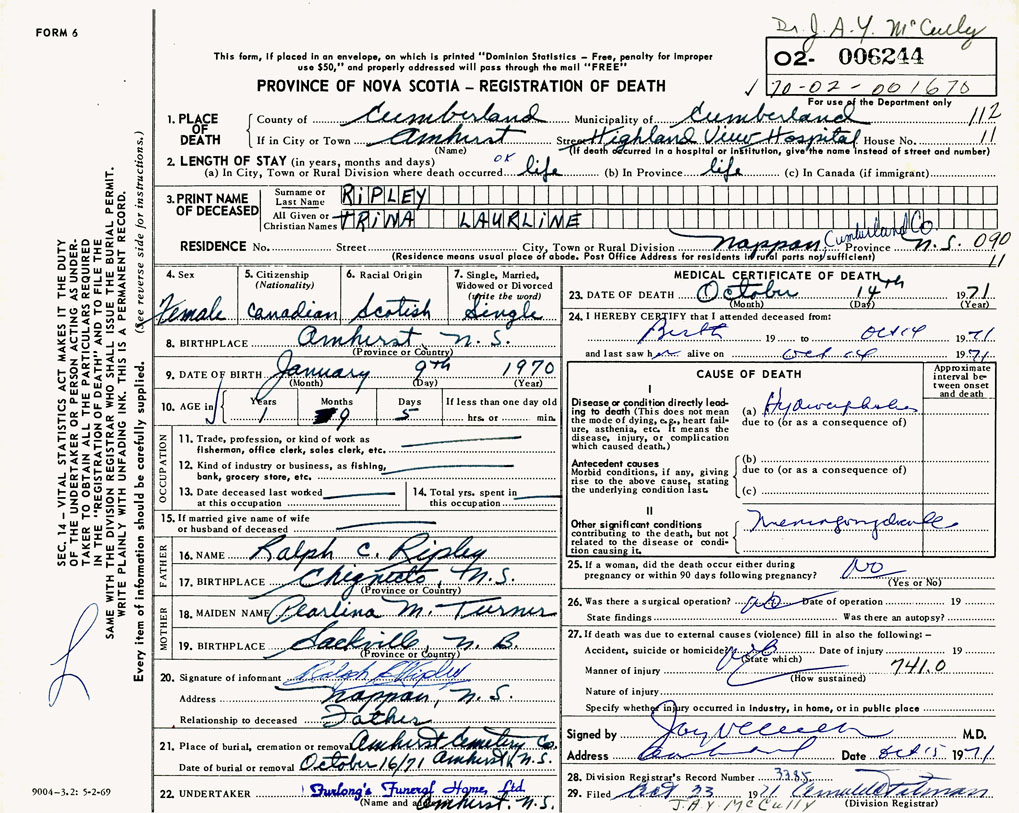 FORM 6
Dr. J. A. Y. McCully
02- 006244
70-02-001670
For use of the Department only
This form, if placed in an envelope, on which is printed "Dominion Statistics – Free, penalty for improper
use $50," and properly addressed will pass through the mail "FREE"
PROVINCE OF NOVA SCOTIA – REGISTRATION OF DEATH
1. PLACE OF DEATH
County of Cumberland Municipality of Cumberland 112
If in City or Town Amhirst Street Highland View Hospital House No. 11
(Name) (If death occurred in a hospital or institution, give the name instead of street and number)
2. LENGTH OF STAY (in years, months and days) OK
(a) In City, Town or Rural Division where death occurred life (b) In Province life (c) In Canada (if immigrant)
3. PRINT NAME OF DECEASED
Surname or Last Name RIPLEY
All Given or Christian Names TRINA LAURLINE
RESIDENCE No. Street City, Town or Rural Division Nappan Cumberland Co. Province N.S. 090
(Residence means usual place of abode. Post Office Address for residents in rural parts not sufficient) 11
4. Sex Female
5. Citizenship (Nationality) Canadian
6. Racial Origin Scotish
7. Single, Married, Widowed or Divorced (write the word) Single
8. BIRTHPLACE Amhirst N.S.
(Province or Country)
9. DATE OF BIRTH January 9th 1970
(Month) (Day) (Year)
10. AGE in Years 1 Months 9 Days 5 If less than one day old hrs. or min.
OCCUPATION
11. Trade, profession, or kind of work as fisherman, office clerk, sales clerk, etc.
12. Kind of industry or business, as fishing, bank, grocery store, etc.
13. Date deceased last worked at this occupation
14. Total yrs. spent in this occupation
15. If married give name of wife or husband of deceased
FATHER
16. NAME Ralph C. Ripley
17. BIRTHPLACE Chignecto, N.S.
(Province or Country)
MOTHER
18. MAIDEN NAME Pearlina M. Turner
19. BIRTHPLACE Sackville, N.B.
(Province or Country)
20. Signature of informant Ralph Ripley
Address Nappan, N.S.
Relationship to deceased Father
21. Place of burial, cremation or removal Amhirst Cemetery Co.
Date of burial or removal October 16/71 Amhirst N.S.
22. UNDERTAKER Furlong's Funeral Home, Ltd
(Name and address) Amhirst, N.S.
MEDICAL CERTIFICATE OF DEATH
23. DATE OF DEATH October 14th 1971
(Month) (Day) (Year)
24. I HEREBY CERTIFY that I attended deceased from:
Birth 19 to Oct 14 1971
and last saw her alive on Oct 14 1971
CAUSE OF DEATH
Approximate interval between onset and death
I
Disease or condition directly leading to death (This does not mean the mode of dying, e.g., heart failure, asthenia, etc. It means the disease, injury, or complication which caused death.)
(a)
due to (or as a consequence of)
Antecedent causes
Morbid conditions, if any, giving rise to the above cause, stating the underlying condition last.
(b)
due to (or as a consequence of)
(c)
II
Other significant conditions contributing to the death, but not related to the disease or condition causing it.
25. If a woman, did the death occur either during pregnancy or within 90 days following pregnancy? No
(Yes or No)
26. Was there a surgical operation? no Date of operation 19
State findings Was there an autopsy?
27. If death was due to external causes (violence) fill in also the following:–
Accident, suicide or homicide? Date of injury 19
(State which)
Manner of injury 741.0
(How sustained)
Nature of injury
Specify whether injury occurred in industry, in home, or in public place
Signed by M.D.
Address Date Oct 15 1971
28. Division Registrar's Record Number 3385
29. Filed Oct 23 1971
J.A.Y. McCully (Division Registrar)
SEC. 14 – VITAL STATISTICS ACT MAKES IT THE DUTY
OF THE UNDERTAKER OR PERSON ACTING AS UNDER-
TAKER TO OBTAIN ALL THE PARTICULARS REQUIRED
IN THE "REGISTRATION OF DEATH" AND TO FILE THE
SAME WITH THE DIVISION REGISTRAR WHO SHALL ISSUE THE BURIAL PERMIT.
WRITE PLAINLY WITH UNFADING INK. THIS IS A PERMANENT RECORD.
Every item of information should be carefully supplied. (See reverse side for instructions.)
9004-3.2: 5-2-69